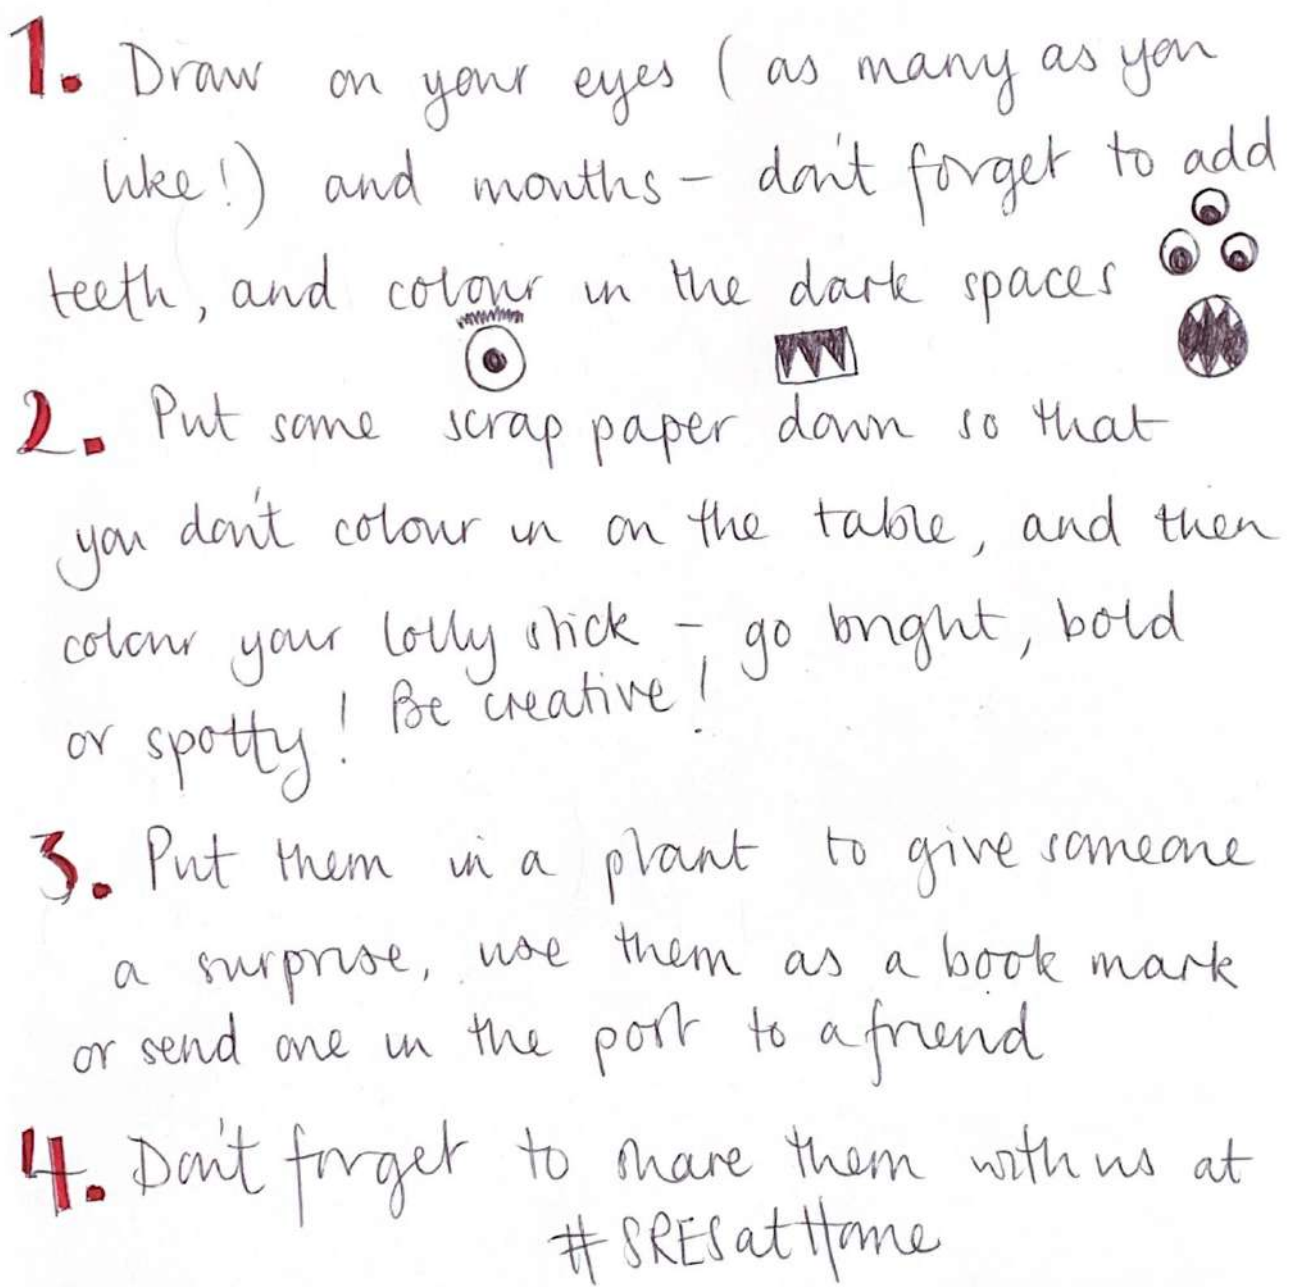 1. Draw on your eyes (as many as you
like!) and mouths - don't forget to add
teeth, and colour in the dark spaces
2. Put some scrap paper down so that
you don't colour in on the table, and then
colour your lolly stick - go bright, bold
or spotty! Be creative!
3. Put them in a plant to give someone
a surprise, use them as a book mark
or send one in the post to a friend
4. Don't forget to share them with us at
#SRESatHome